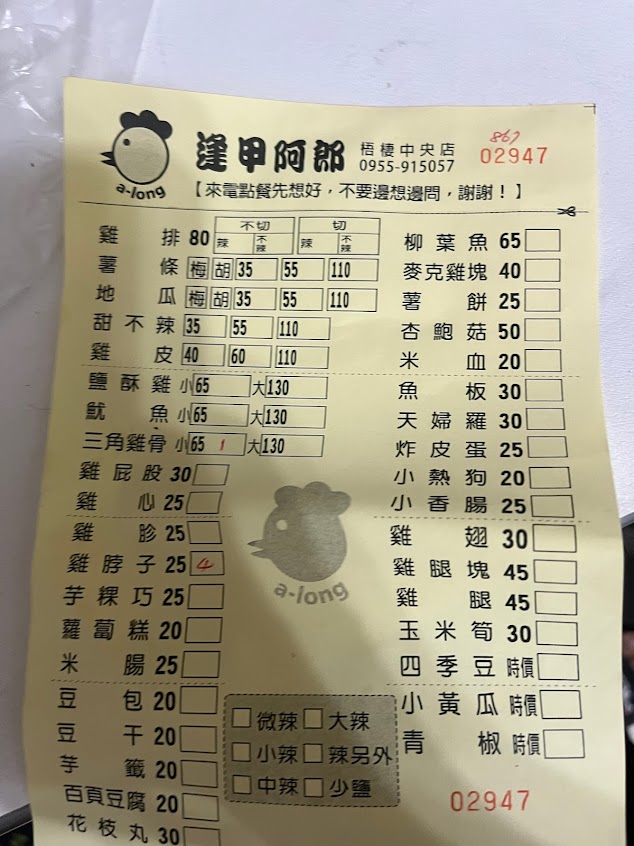 逢甲阿郎 梧棲中央店 0955-915057
867
02947
a-long
【來電點餐先想好，不要邊想邊問，謝謝！】
雞排 80 不切 辣 不辣 切 辣 不辣
薯條 梅 胡 35 55 110
地瓜 梅 胡 35 55 110
甜不辣 35 55 110
雞皮 40 60 110
鹽酥雞 小 65 大 130
魷魚 小 65 大 130
三角雞骨 小 65 1 大 130
雞屁股 30
雞心 25
雞胗 25
雞脖子 25 4
芋粿巧 25
蘿蔔糕 20
米腸 25
豆包 20
豆干 20
芋籤 20
百頁豆腐 20
花枝丸 30
柳葉魚 65
麥克雞塊 40
薯餅 25
杏鮑菇 50
米血 20
魚板 30
天婦羅 30
炸皮蛋 25
小熱狗 20
小香腸 25
雞翅 30
雞腿塊 45
雞腿 45
玉米筍 30
四季豆 時價
小黃瓜 時價
青椒 時價
a-long
微辣 大辣
小辣 辣另外
中辣 少鹽
02947